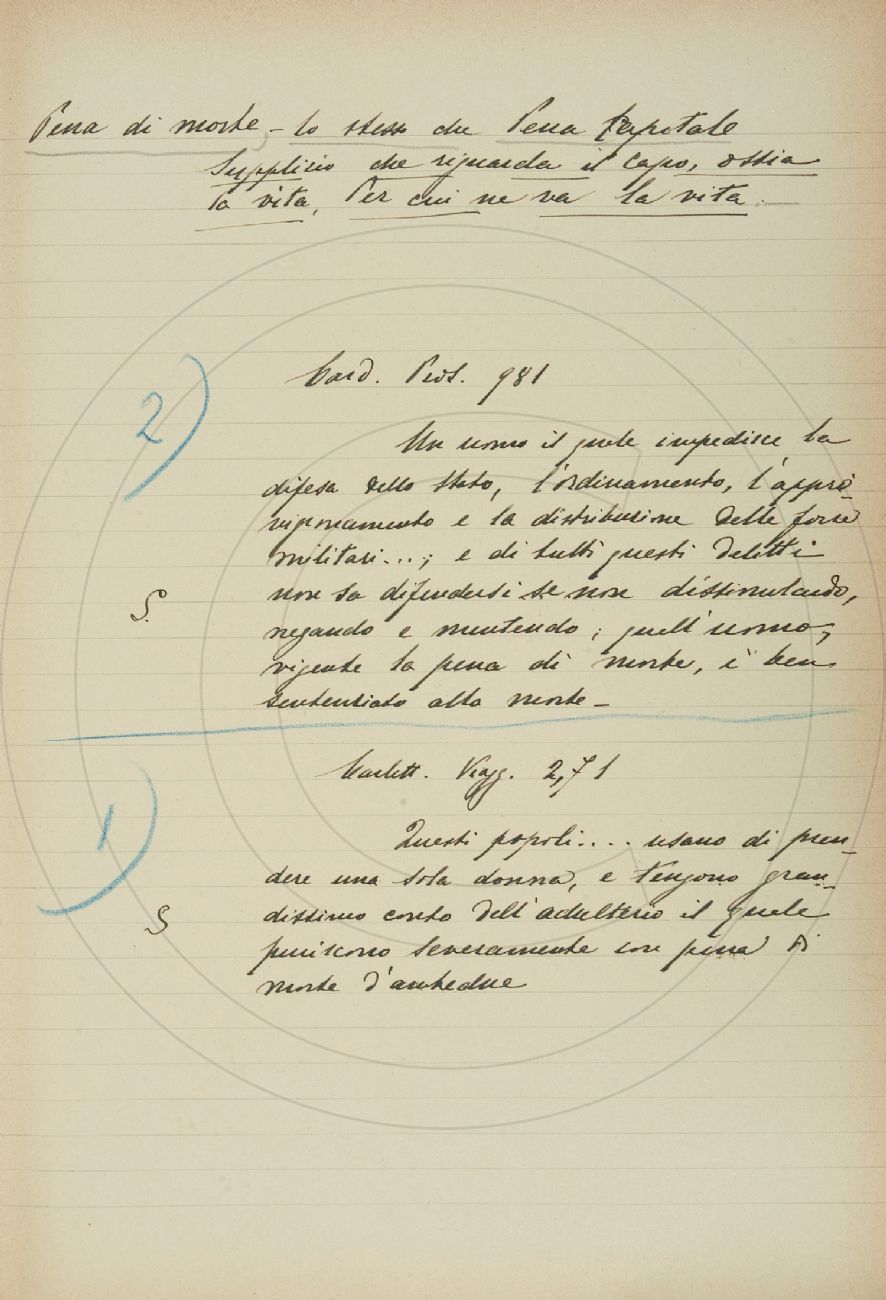 Pena di morte, - lo stesso che Pena Capitale
Supplizio che riguarda il Capo, ossia
la vita, Per cui ne va la vita.
2)
Card. Pros. 981
Un uomo il quale impedisce la
difesa dello Stato, l'ordinamento, l'appro-
vigionamento e la distribuzione delle forze
militari...; e di tutti questi delitti
non sa difendersi se non dissimulando,
negando e mentendo; quell'uomo,
vigente la pena di morte, è ben
sentenziato alla morte -
1)
Carlett. Viagg. 2,71
S
Questi popoli.... usano di pren-
dere una sola donna, e tengono gran-
dissimo conto dell'adulterio il quale
puniscono severamente con pena di
morte d'ambedue